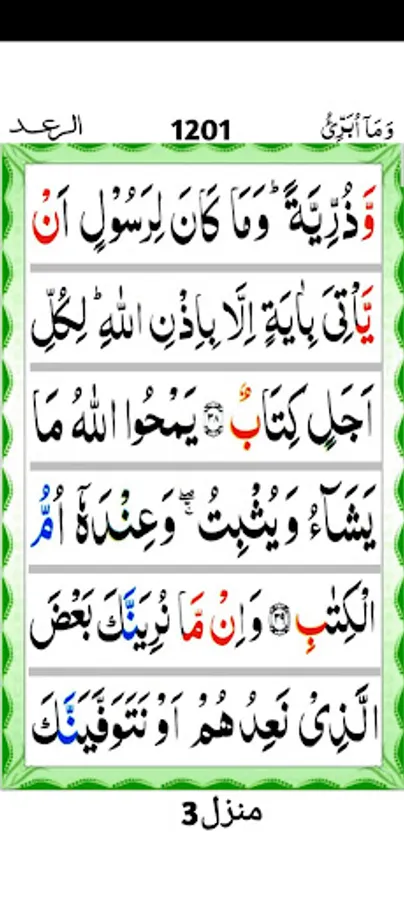 وَمَآ اُبَرِّئُ 1201 الرعد
وَّذُرِّيَّةً ؕ وَمَا كَانَ لِرَسُوْلٍ اَنْ
يَّاْتِىَ بِاٰيَةٍ اِلَّا بِاِذْنِ اللّٰهِ ؕ لِكُلِّ
اَجَلٍ كِتَابٌ ۝۳۸ يَمْحُوا اللّٰهُ مَا
يَشَآءُ وَيُثْبِتُ ۖۚ وَعِنْدَهٗۤ اُمُّ
الْكِتٰبِ ۝۳۹ وَاِنْ مَّا نُرِيَنَّكَ بَعْضَ
الَّذِىْ نَعِدُهُمْ اَوْ نَتَوَفَّيَنَّكَ
منزل 3